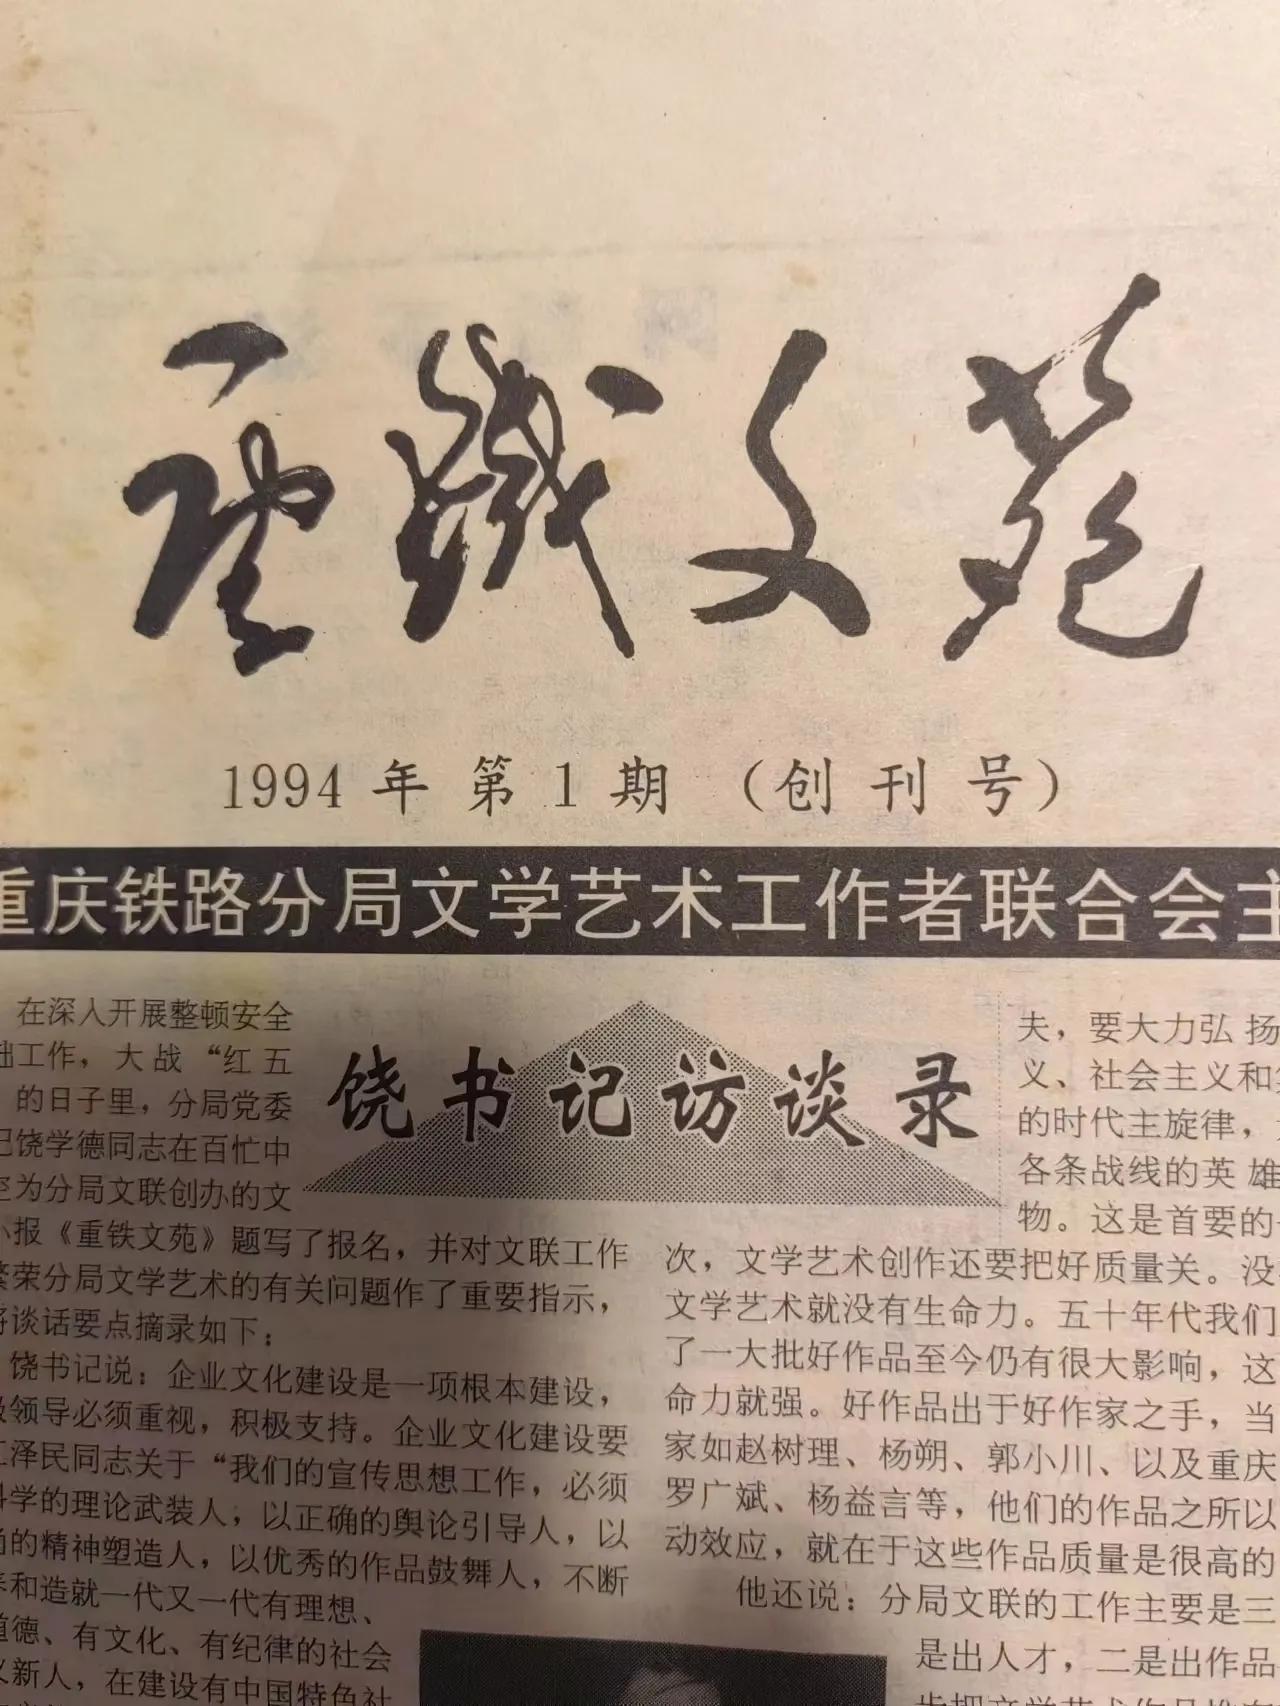 重铁文苑
1994年第1期（创刊号）
重庆铁路分局文学艺术工作者联合会主
饶书记访谈录
在深入开展整顿安全
础工作，大战“红五
的日子里，分局党委
记饶学德同志在百忙中
为分局文联创办的文
小报《重铁文苑》题写了报名，并对文联工作
繁荣分局文学艺术的有关问题作了重要指示，
将谈话要点摘录如下：
饶书记说：企业文化建设是一项根本建设，
级领导必须重视，积极支持。企业文化建设要
江泽民同志关于“我们的宣传思想工作，必须
科学的理论武装人，以正确的舆论引导人，以
尚的精神塑造人，以优秀的作品鼓舞人，不断
养和造就一代又一代有理想、
道德、有文化、有纪律的社会
义新人，在建设有中国特色社
夫，要大力弘扬
义、社会主义和
的时代主旋律，
各条战线的英雄
物。这是首要的
次，文学艺术创作还要把好质量关。没
文学艺术就没有生命力。五十年代我们
了一大批好作品至今仍有很大影响，这
命力就强。好作品出于好作家之手，当
家如赵树理、杨朔、郭小川、以及重庆
罗广斌、杨益言等，他们的作品之所以
动效应，就在于这些作品质量是很高的
他还说：分局文联的工作主要是三
是出人才，二是出作品